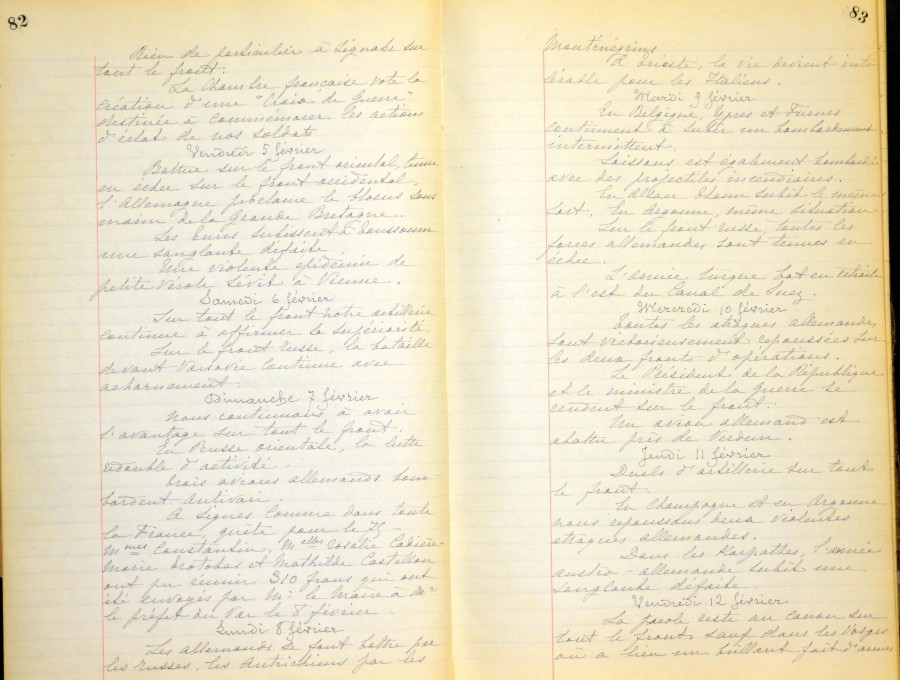 82
Rien de particulier à signaler sur
tout le front.
La Chambre française vote la
création d'une "Croix de Guerre"
destinée à commémorer les actions
d'éclat de nos soldats
Vendredi 5 février
Battue sur le front oriental, tenue
en échec sur le front occidental,
l'Allemagne proclame le blocus sous
marin de la Grande Bretagne.
Les turcs subissent à
une sanglante défaite
Une violente épidémie de
petite vérole sévit à Vienne.
Samedi 6 février
Sur tout le front notre artillerie
continue à affirmer sa supériorité.
Sur le front russe, la bataille
devant Varsovie continue avec
acharnement.
Dimanche 7 février
Nous continuons à avoir
l'avantage sur tout le front.
En Prusse orientale, la lutte
redouble d'activité.
Trois avions allemands bom
bardent Antivari.
A Signes comme dans toute
la France, quête pour le 75 -
Mmes Constantin, Melles Rosalie Cadière
Marie Trotobas et Mathilde Castillon
ont pu réunir 310 frans qui ont
été envoyés par Mr le Maire à Mr
le préfet du Var le 8 février
Lundi 8 février
Les allemands se font battre par
les russes, les Autrichiens par les
83
Monténégrins
A Trieste, la vie devient into
lérable pour les Italiens.
Mardi 9 février
En Belgique, Ypres et Furnes
continuent à subir un bombardement
intermittent.
Soissons est également bombardé
avec des projectiles incendiaires.
En Alsace Thann subit le même
sort. En Argonne, même situation
Sur le front russe, toutes les
forces allemandes sont tenues en
échec.
L'armée turque bat en retraite
à l'est du Canal de Suez.
Mercredi 10 février
Toutes les attaques allemandes
sont victorieusement repoussées sur
les deux fronts d'opérations.
Le Président de la République
et le ministre de la guerre se
rendent sur le front.
Un avion allemand est
abattu près de Verdun.
Jeudi 11 février
Duels d'artillerie sur tout
le front.
En Champagne et en Argonne
nous repoussons deux violentes
attaques allemandes.
Dans les Karpathes, l'armée
austro-allemande subit une
sanglante défaite.
Vendredi 12 février
La parole reste au canon sur
tout le front, sauf dans les Vosges
où a lieu un brillant fait d'armes